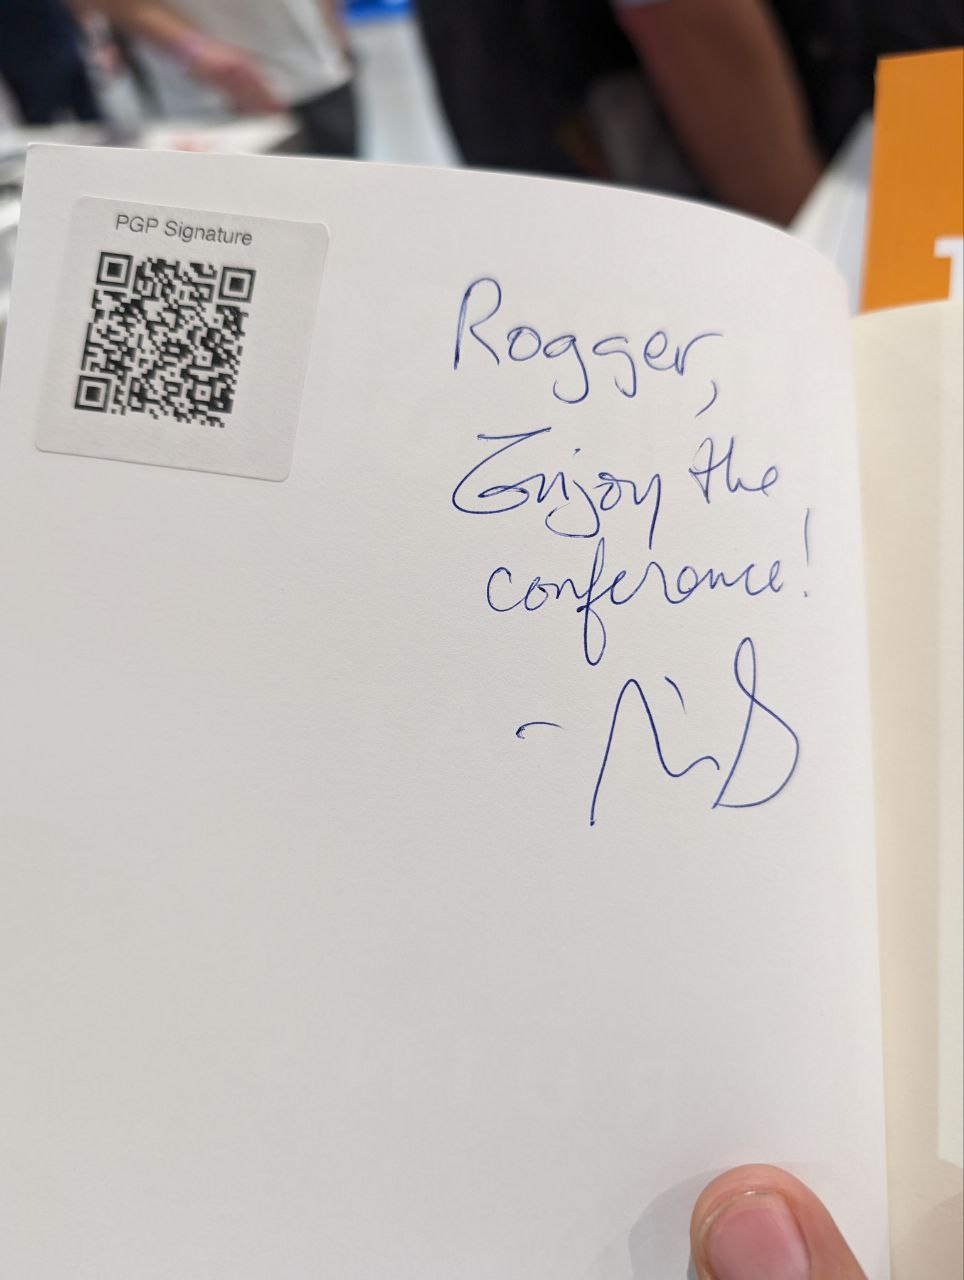 PGP Signature
Rogger,
Enjoy the
conference!